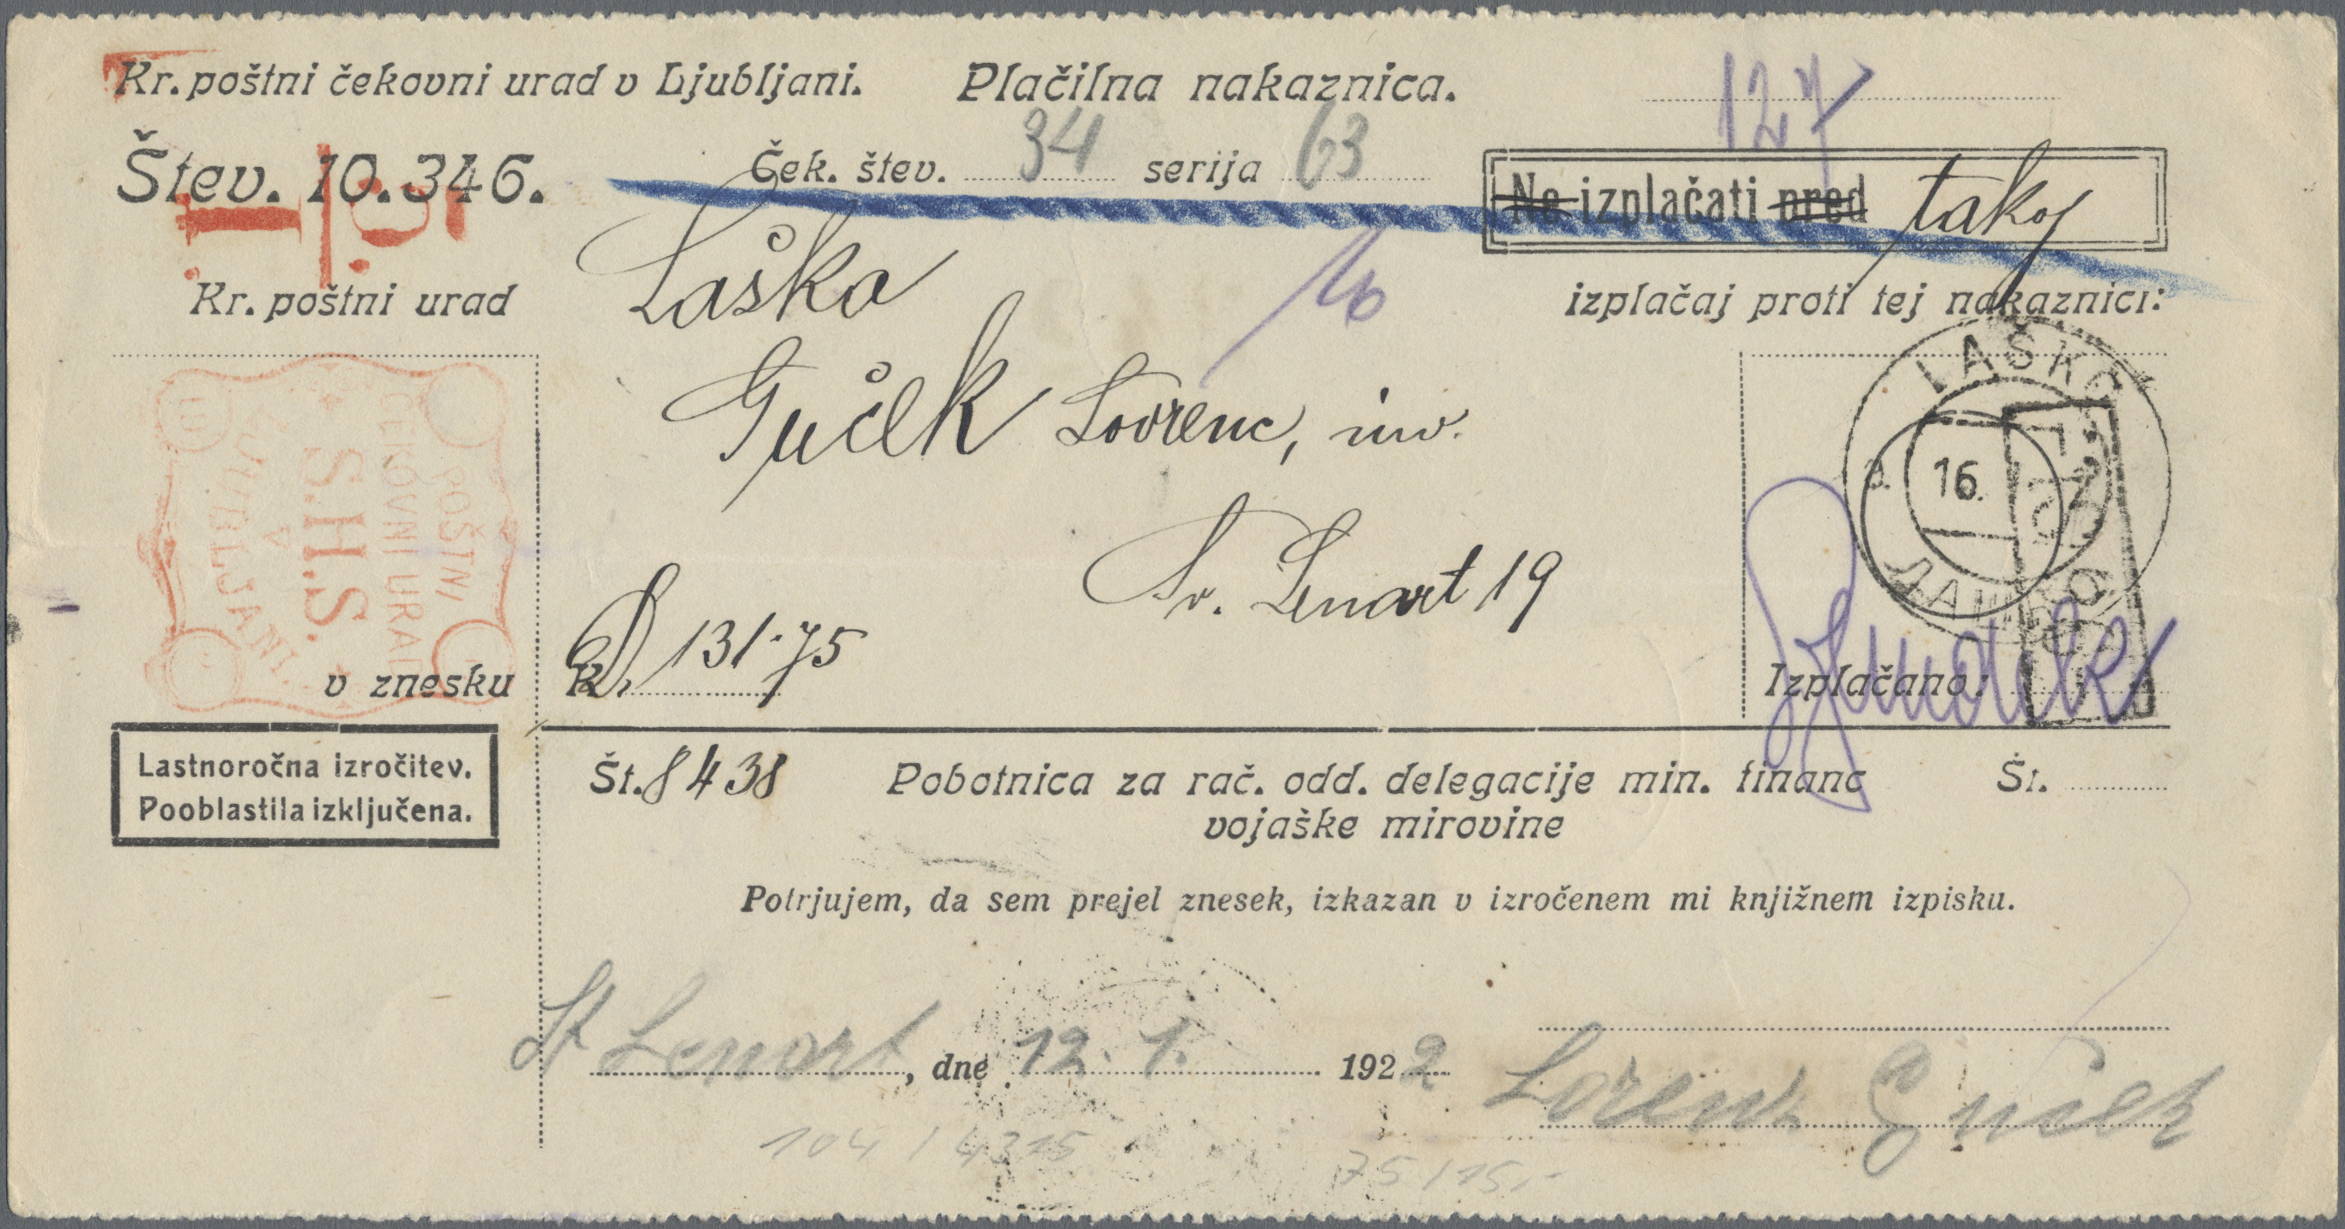 Kr. poštni čekovni urad v Ljubljani. Plačilna nakaznica. 127
Štev. 10.346. Ček. štev. 34 serija 63
Ne izplačati pred takoj
Kr. poštni urad Laško izplačaj proti tej nakaznici:
10
Guček Lovrenc, inv.
Sv. Lenart 19
POŠTNI
ČEKOVNI URAD
S.H.S.
V
LJUBLJANI
LAŠKO
16.
v znesku K. D 131·75 Izplačano:
Lastnoročna izročitev.
Pooblastila izključena.
Št. 8438 Pobotnica za rač. odd. delegacije min. financ Št.
vojaške mirovine
Potrjujem, da sem prejel znesek, izkazan v izročenem mi knjižnem izpisku.
St Lenart, dne 12. 1. 1922
Lorenz Guček
104 / 4315
75 / 15,-